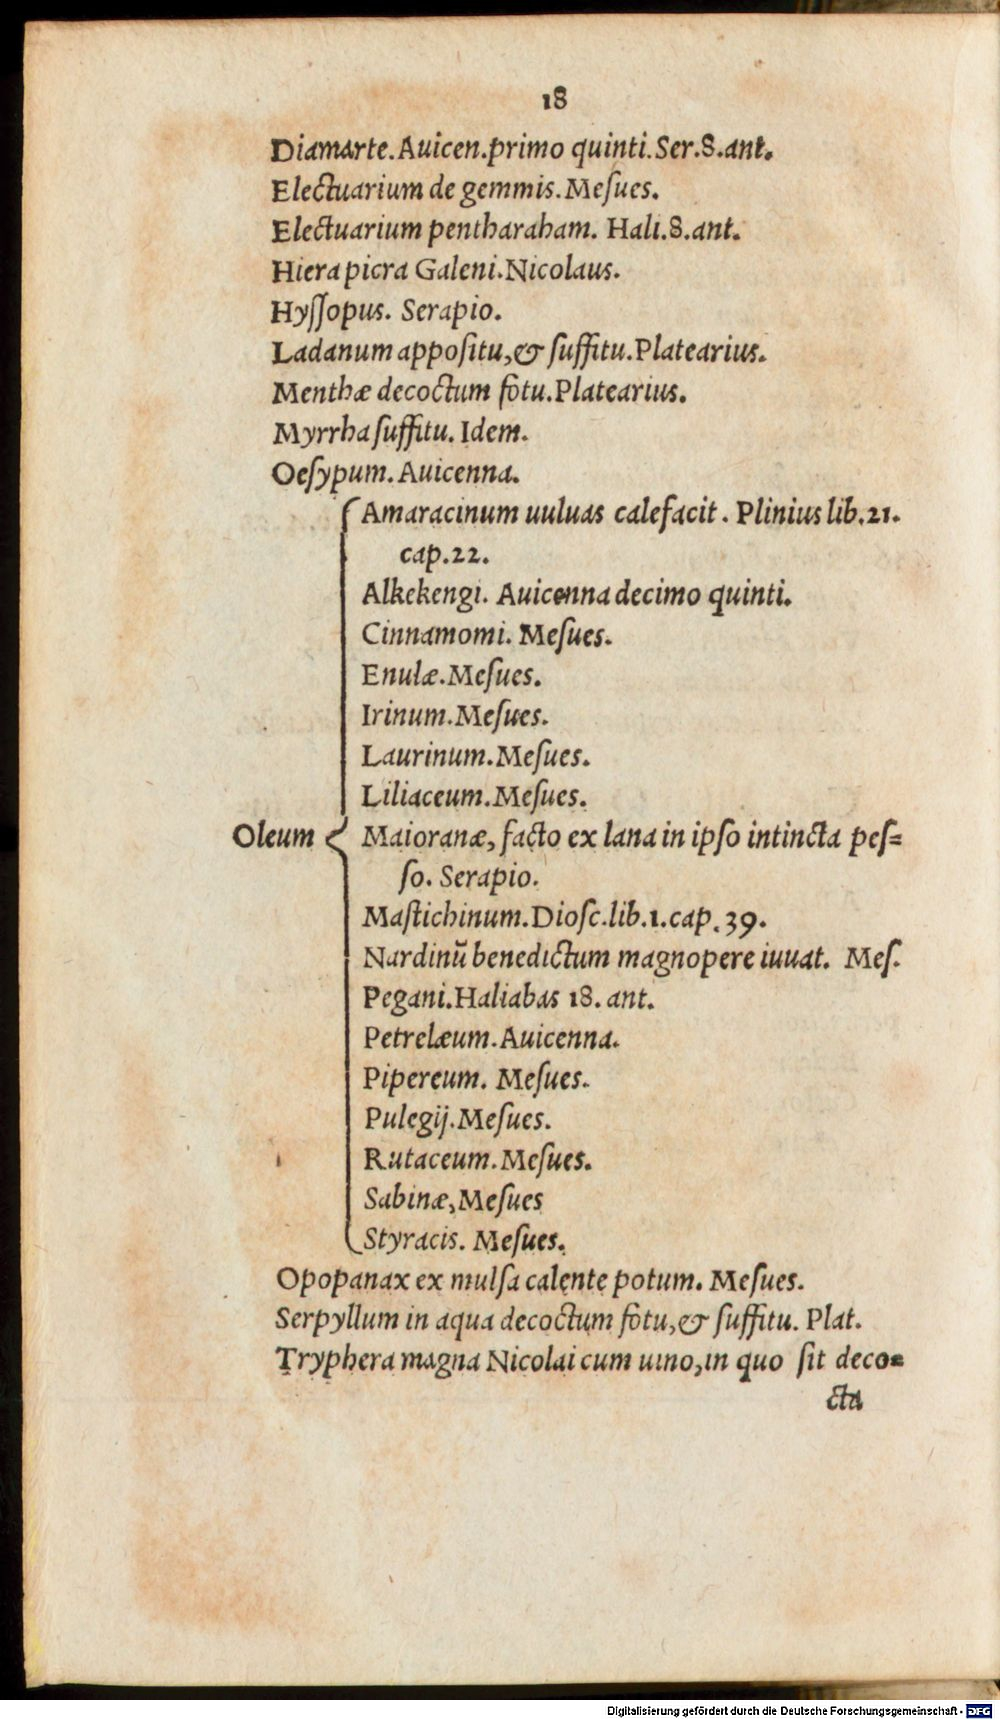 18
Diamarte. Auicen. primo quinti. Ser. 8. ant.
Electuarium de gemmis. Meſues.
Electuarium pentharaham. Hali. 8. ant.
Hiera picra Galeni. Nicolaus.
Hyſſopus. Serapio.
Ladanum appoſitu, & ſuffitu. Platearius.
Menthæ decoctum fotu. Platearius.
Myrrha ſuffitu. Idem.
Oeſypum. Auicenna.
Amaracinum uuluas calefacit. Plinius lib. 21.
cap. 22.
Alkekengi. Auicenna decimo quinti.
Cinnamomi. Meſues.
Enulæ. Meſues.
Irinum. Meſues.
Laurinum. Meſues.
Liliaceum. Meſues.
Oleum { Maioranæ, facto ex lana in ipſo intincta peſ=
ſo. Serapio.
Maſtichinum. Dioſc. lib. 1. cap. 39.
Nardinũ benedictum magnopere iuuat. Meſ.
Pegani. Haliabas 18. ant.
Petrelæum. Auicenna.
Pipereum. Meſues.
Pulegij. Meſues.
Rutaceum. Meſues.
Sabinæ, Meſues
Styracis. Meſues.
Opopanax ex mulſa calente potum. Meſues.
Serpyllum in aqua decoctum fotu, & ſuffitu. Plat.
Tryphera magna Nicolai cum uino, in quo ſit deco=
cta
Digitalisierung gefördert durch die Deutsche Forschungsgemeinschaft - DFG